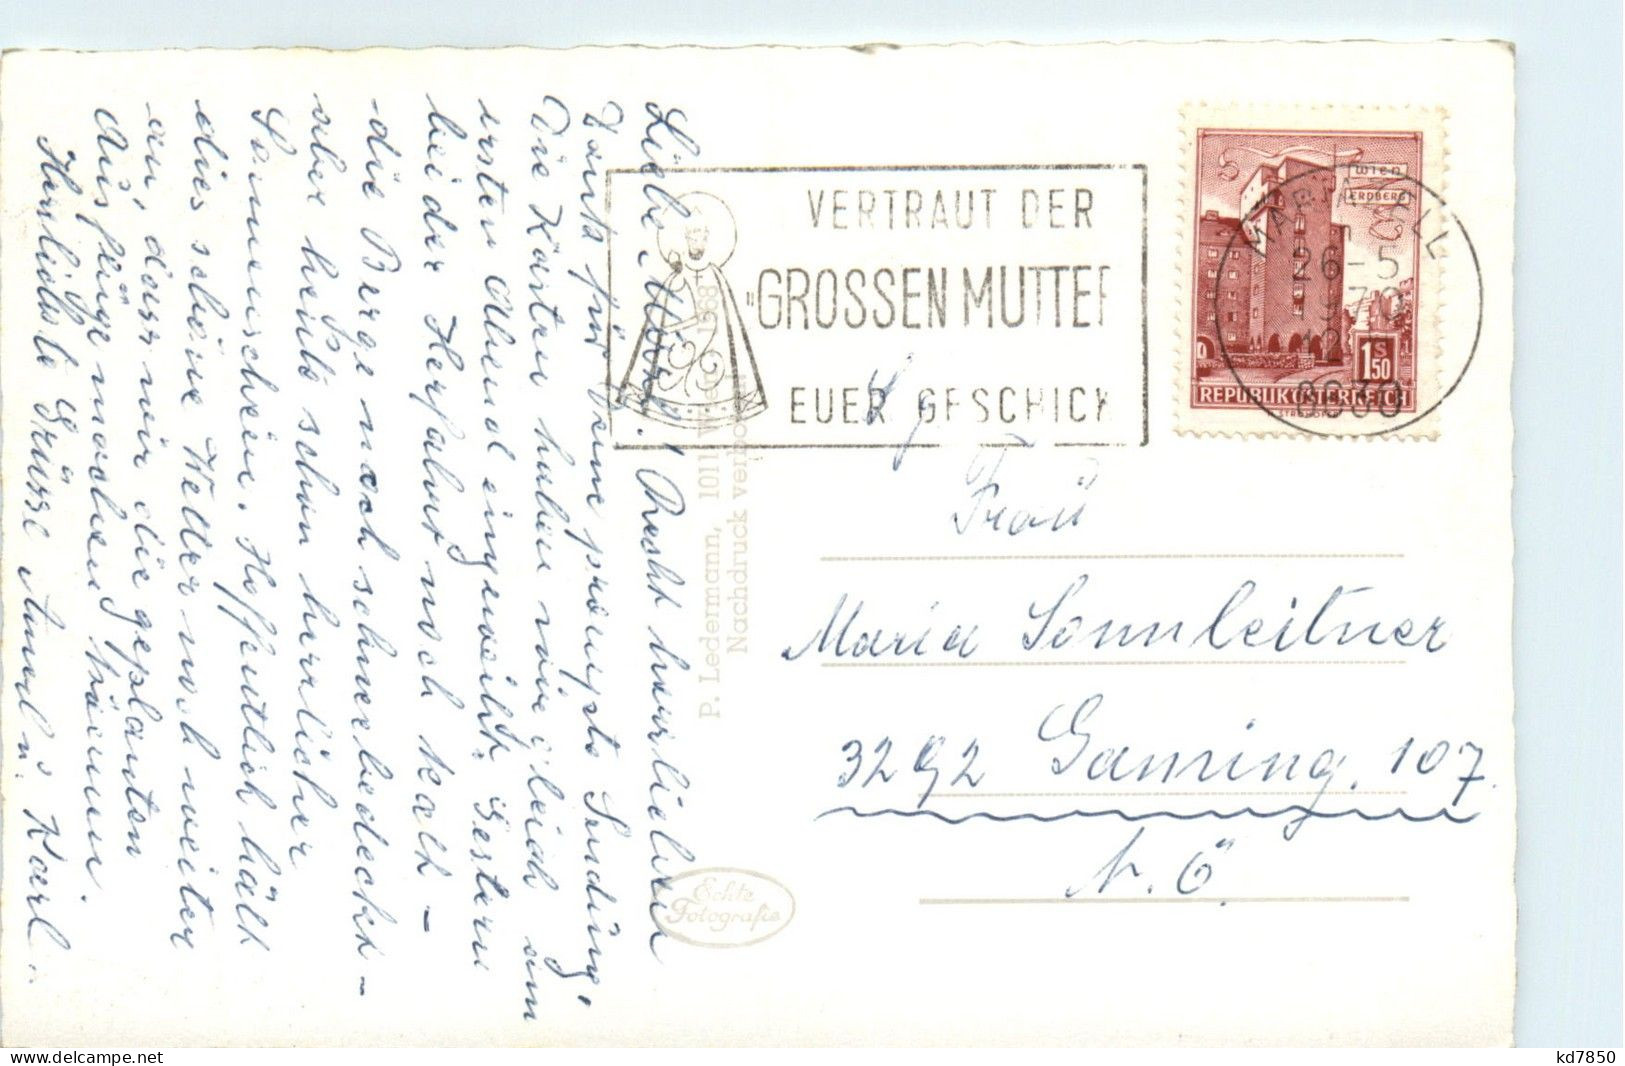 Liebe Mizzi! Recht herzlichen
Dank für Deine prompte Sendung,
die Karten haben wir gleich am
ersten Abend eingeweiht. Gestern
bei der Herfahrt noch kalt -
die Berge noch schneebedeckt -
aber heute schon herrlicher
Sonnenschein. Hoffentlich hält
dies schöne Wetter noch weiter
an, dass wir die geplanten
Ausflüge machen können.
Herzlichste Grüsse Amerl u. Karl
P. Ledermann, 1011
1968
Nachdruck verboten
Echte
Fotografie
VERTRAUT DER
"GROSSEN MUTTER
EUER GESCHICK
WIEN
ERDBERG
S
1.50
REPUBLIK ÖSTERREICH
MARIAZELL
26-5
1970
12
8630
Frau
Maria Sonnleitner
3292 Gaming, 107
N.Ö.
kd7850
www.delcampe.net